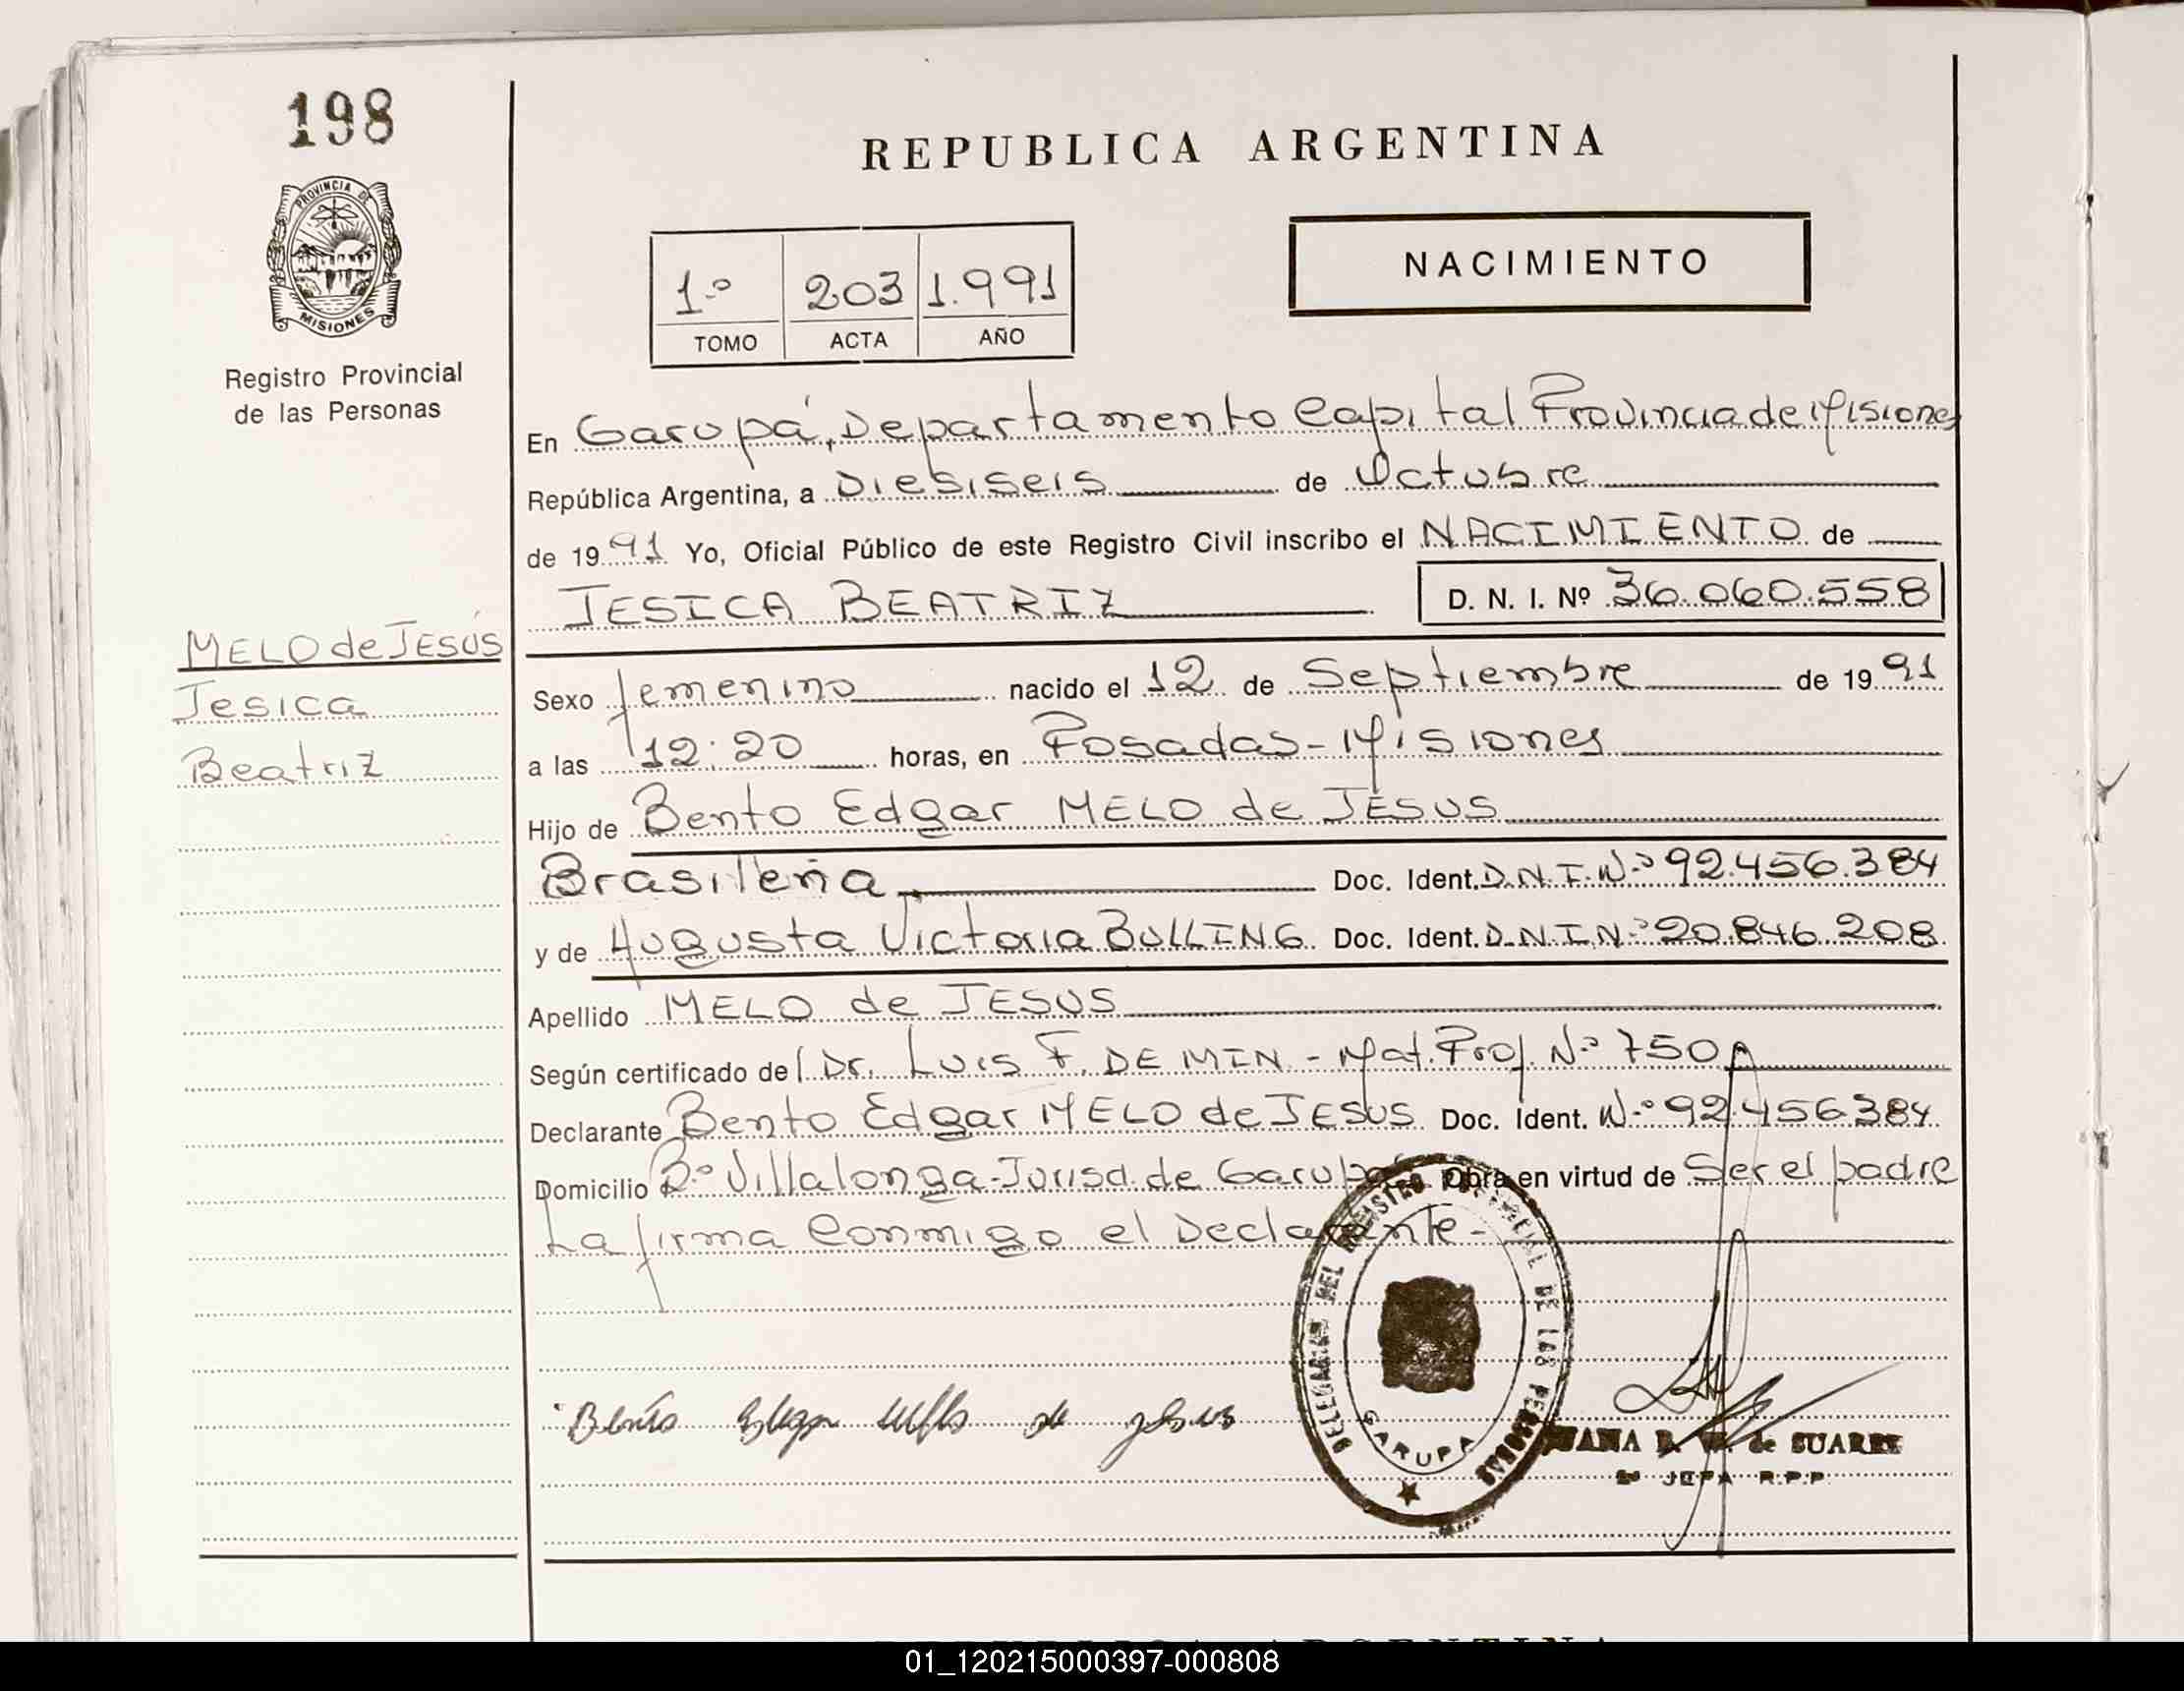 198
PROVINCIA DE
MISIONES
Registro Provincial
de las Personas
MELO de JESÚS
Jesica
Beatriz
REPUBLICA ARGENTINA
1.º 203 1.991
TOMO ACTA AÑO
NACIMIENTO
En Garupá, Departamento Capital Provincia de Misiones
República Argentina, a Diesiseis de Octubre
de 1991 Yo, Oficial Público de este Registro Civil inscribo el NACIMIENTO de
JESICA BEATRIZ D. N. I. Nº 36.060.558
Sexo femenino nacido el 12 de Septiembre de 1991
a las 12:20 horas, en Posadas - Misiones
Hijo de Bento Edgar MELO de JESUS
Brasileña Doc. Ident. D.N.I. N.º 92.456.384
y de Augusta Victoria BULLING Doc. Ident. D.N.I.N.º 20.846.208
Apellido MELO de JESUS
Según certificado del Dr. Luis F. DE MIN - Mat. Prof. N.º 750
Declarante Bento Edgar MELO de JESUS Doc. Ident. N.º 92.456.384
Domicilio B.º Villalonga - Jurisd. de Garupá Obra en virtud de Ser el padre
La firma Conmigo el Declarante -
DELEGACION DEL REGISTRO PROVINCIAL DE LAS PERSONAS
GARUPA
Bento Edgar Mello de Jesus
de SUAREZ
JEFA R.P.P.
01_120215000397-000808